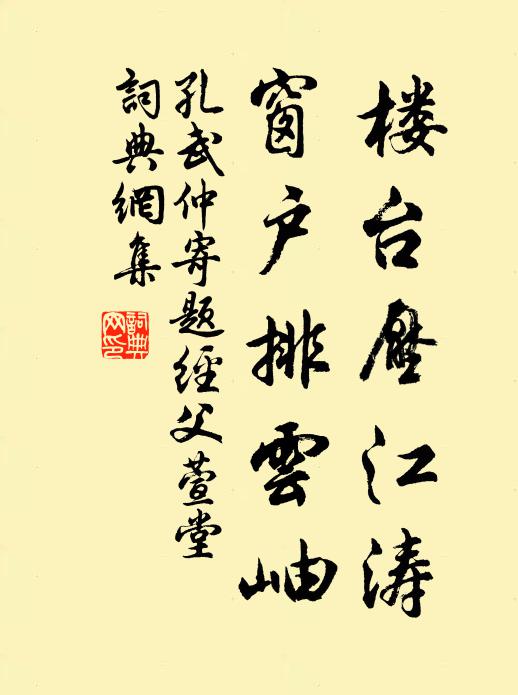 楼台壓江涛
窗户排雲岫
孔武仲寄题經父萱堂
詞典網集
詞典
网印